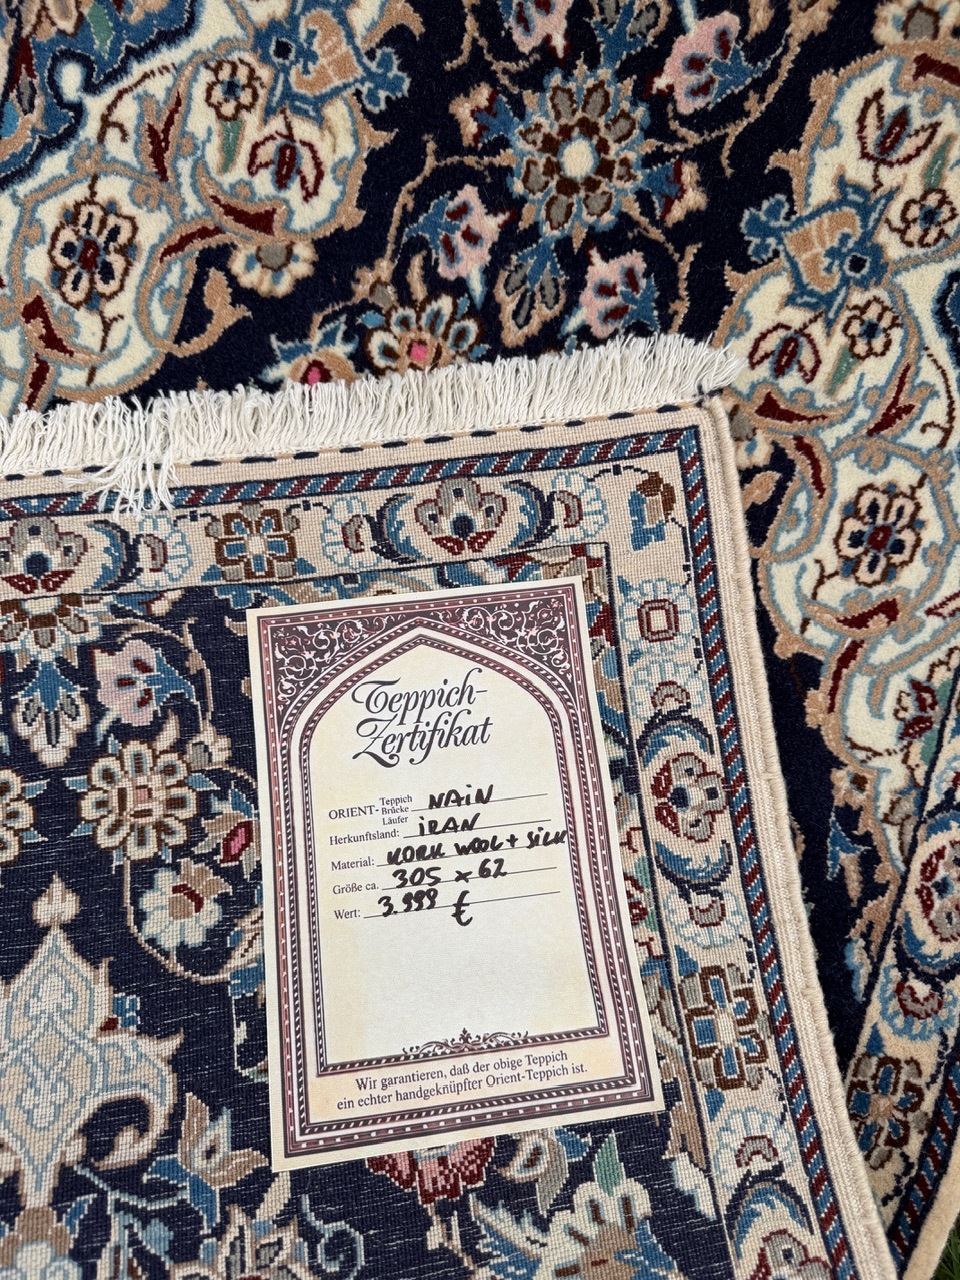 Teppich-
Zertifikat
ORIENT- Teppich Brücke Läufer NAIN
Herkunftsland: IRAN
Material: KORK WOOL + SILK
Größe ca. 305 x 62
Wert: 3.999 €
Wir garantieren, daß der obige Teppich
ein echter handgeknüpfter Orient-Teppich ist.